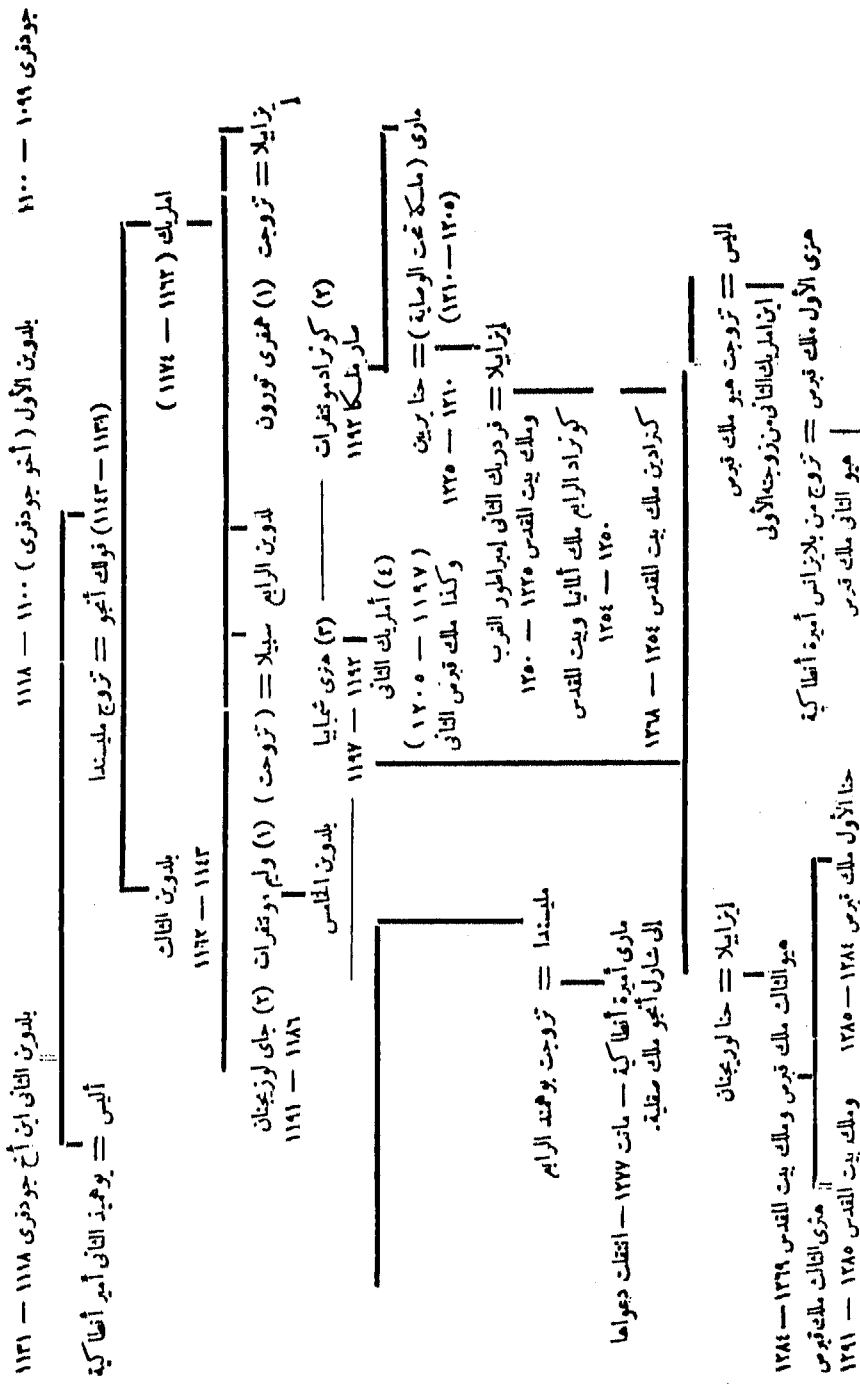 جودفرى ١٠٩٩ — ١١٠٠
بلدوين الأول ( أخو جودفرى ) ١١٠٠ — ١١١٨
بلدوين الثانى ابن أخ جودفرى ١١١٨ — ١١٣١
(١١٣١ — ١١٤٣) فولك أنجو = تزوج مليسندا
أليس = بوهيمند الثانى أمير أنطاكية
املريك ( ١١٦٢ — ١١٧٤ )
بلدوين الثالث
١١٤٣ — ١١٦٢
إيزابيلا = تزوجت (١) همفرى تورون
بلدوين الرابع
سبيلا = ( تزوجت ) (١) وليم مونتفرات (٢) جاى لوزيجنان
١١٨٦ — ١١٩١
(٢) كونراد مونتفرات
صار ملكا ١١٩٢
(٣) هنرى شمبانيا
١١٩٢ — ١١٩٧
بلدوين الخامس
(٤) أملريك الثانى
( ١١٩٧ — ١٢٠٥ )
وكذا ملك قبرص الثانى
مارى ( ملكة تحت الوصاية ) = حنا بريين
(١٢٠٥ — ١٢١٠)
١٢١٠ — ١٢٢٥
إيزابيلا = فردريك الثانى إمبراطور الغرب
وملك بيت المقدس ١٢٢٥ — ١٢٥٠
كونراد الرابع ملك ألمانيا وبيت المقدس
١٢٥٠ — ١٢٥٤
كنرادين ملك بيت المقدس ١٢٥٤ — ١٢٦٨
مليسندا = تزوجت بوهمند الرابع
مارى أميرة أنطاكية — ماتت ١٢٧٧ — انتقلت دعواها
إلى شارل أنجو ملك صقلية.
أليس = تزوجت هيو ملك قبرص
ابن املريك الثانى من زوجته الأولى
هنرى الأول ملك قبرص = تزوج من بلازانس أميرة أنطاكية
هيو الثانى ملك قبرص
إيزابيلا = حنا لوزيجنان
هيو الثالث ملك قبرص وملك بيت المقدس ١٢٦٩ — ١٢٨٤
حنا الأول ملك قبرص ١٢٨٤ — ١٢٨٥
هنرى الثالث ملك قبرص
وملك بيت المقدس ١٢٨٥ — ١٢٩١